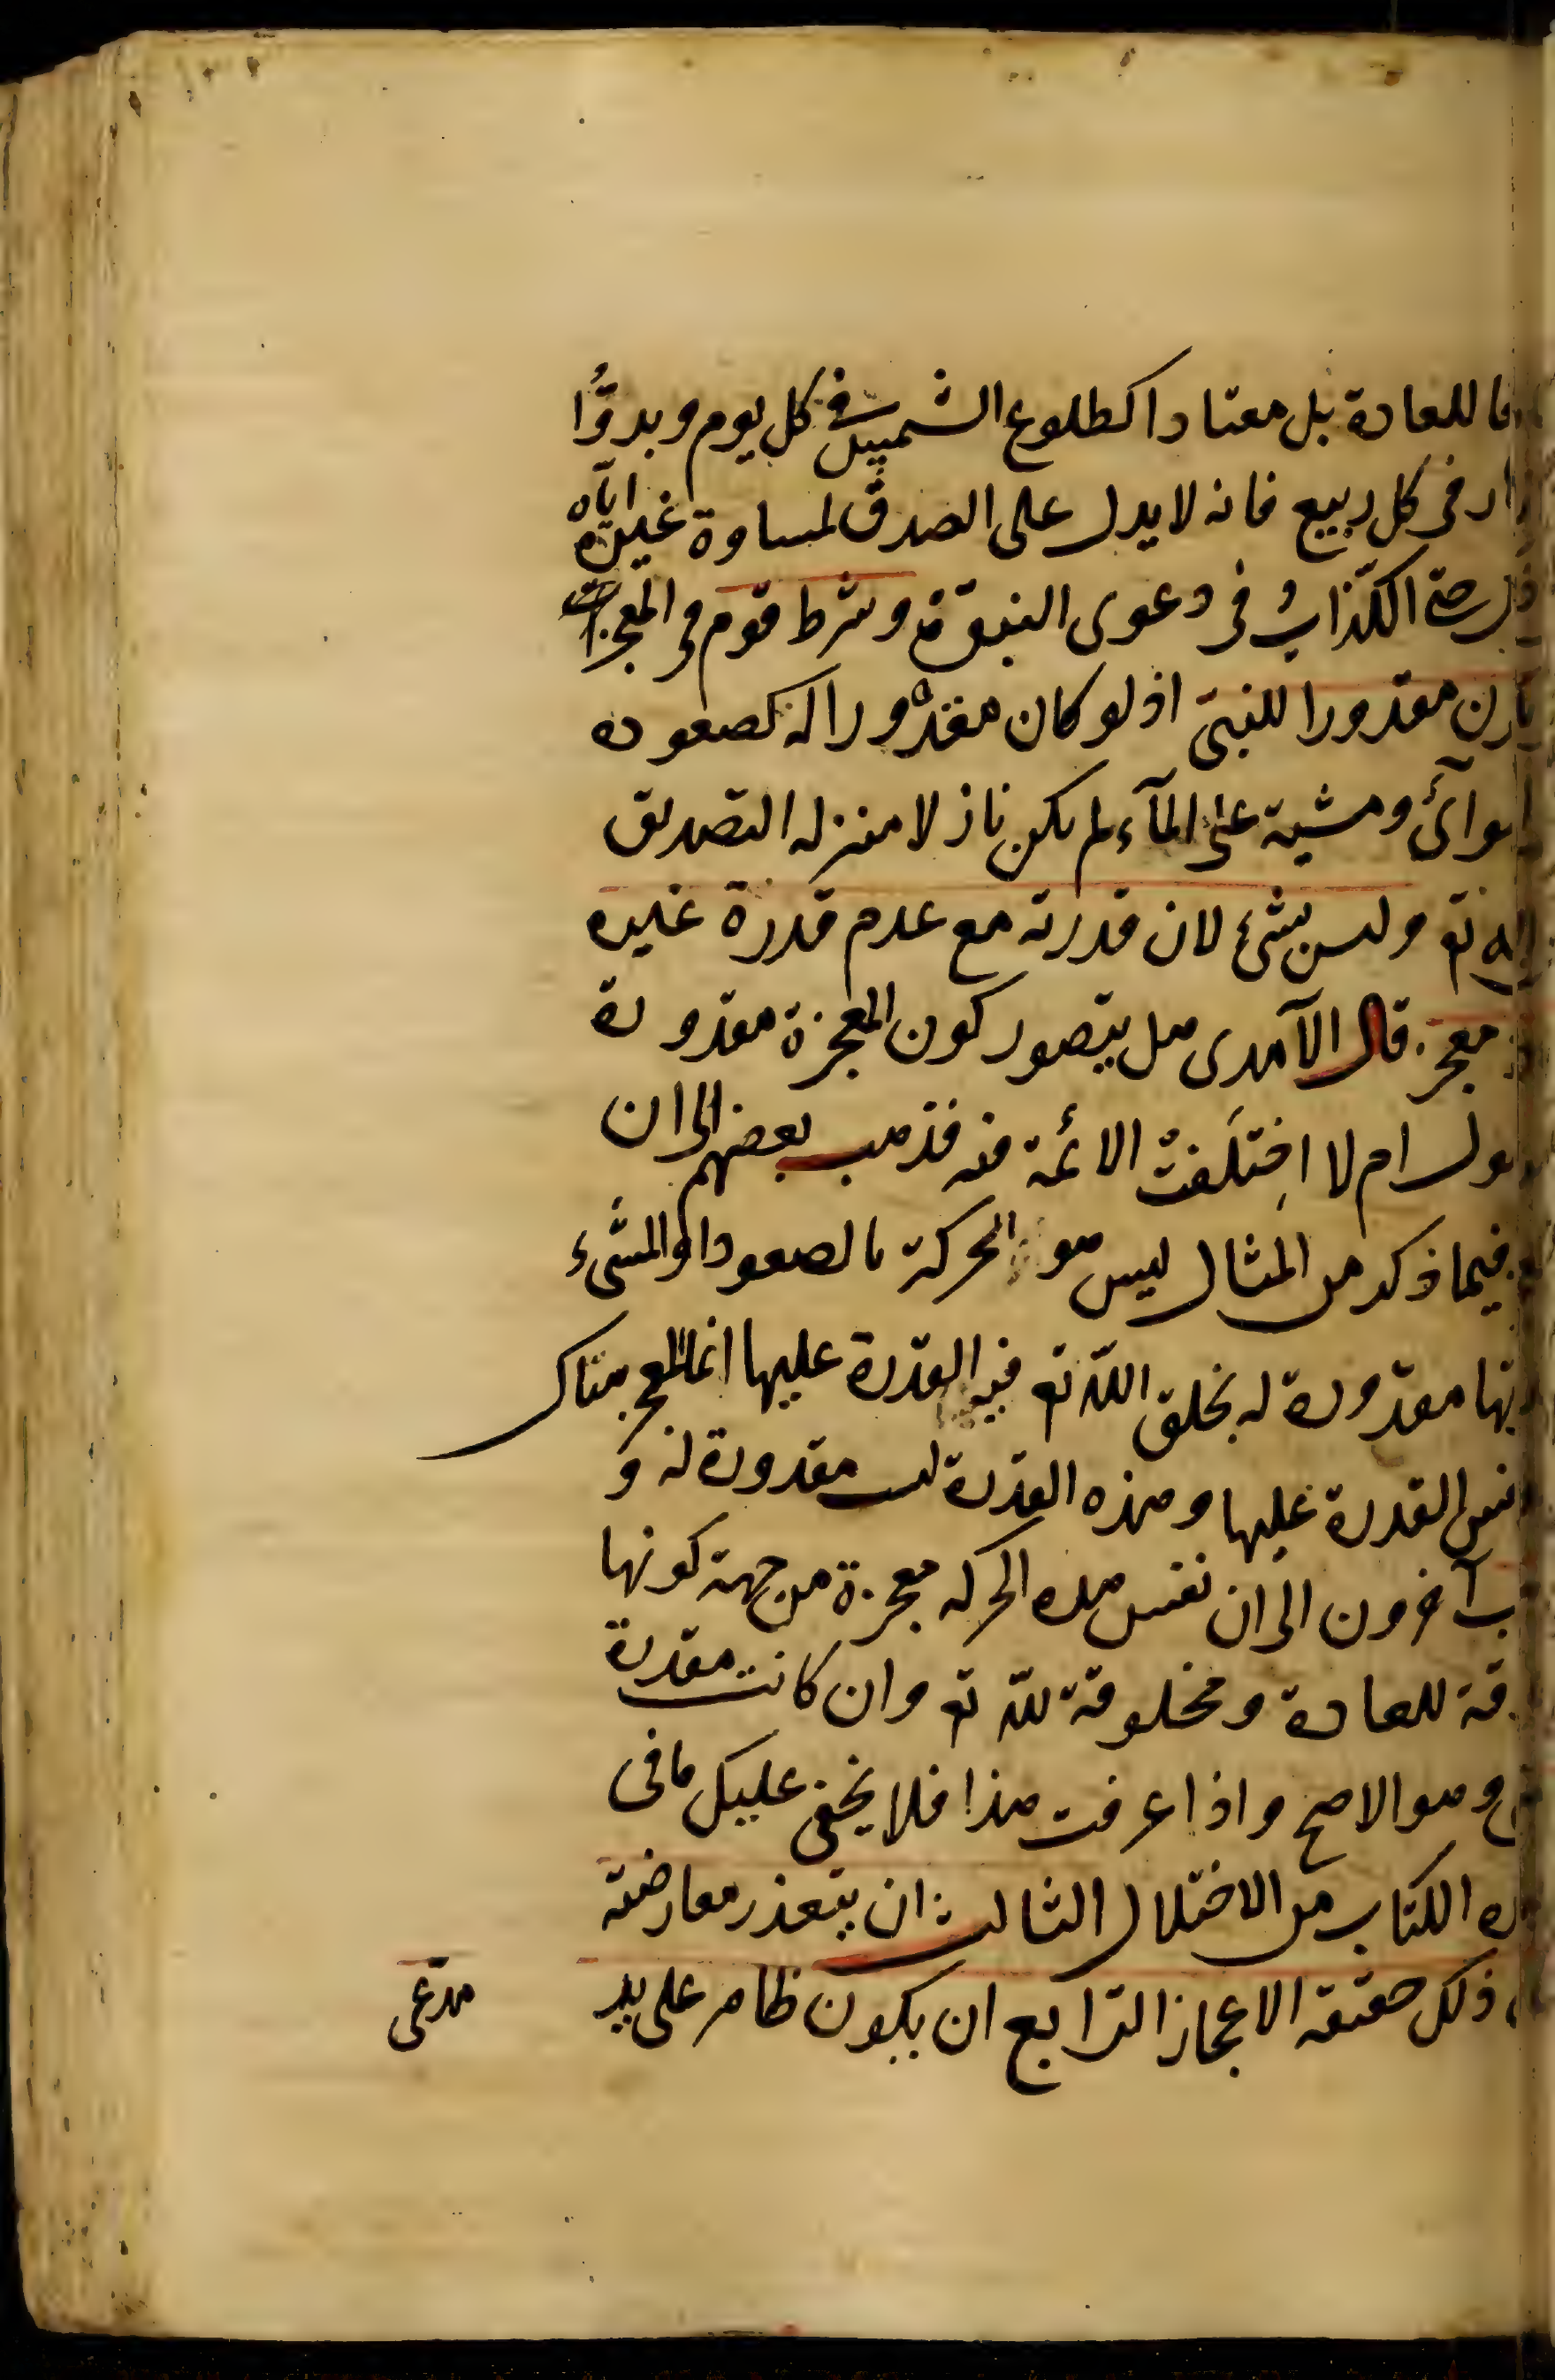 للعادة بل معتادا كطلوع الشمس في كل يوم وبدوّا
في كل ربيع فانه لا يدل على الصدق لمساوة غيره اياه
حتى الكذاب في دعوى النبوّة وشرط قوم في المعجزات
مقدورا للنبى اذ لو كان مقدورا له كصعوده
ومشيه على المآء لم يكن نازلا منزله التصديق
تع وليس بشئ لان قدرته مع عدم قدرة غيره
معجز. قال الآمدى هل يتصور كون المعجزة مقدورة
ام لا اختلفت الائمة فيه فذهب بعضهم الى ان
فيما ذكر من المثال ليس هو الحركة بالصعود او المشىء
مقدورة له بخلق الله تع فيه القدرة عليها انما المعجز هناك
نفس القدرة عليها وهذه القدرة ليست مقدورة له و
آخرون الى ان نفس هذه الحركه معجزة من جهة كونها
للعادة ومخلوقة لله تع وان كانت مقدرة
وهو الاصح واذا عرفت هذا فلا يخفى عليك ما فى
الكتاب من الاختلال الثالث ان يتعذر معارضته
ذلك حقيقه الاعجاز الرّابع ان يكون ظاهر على يد
مدّعى